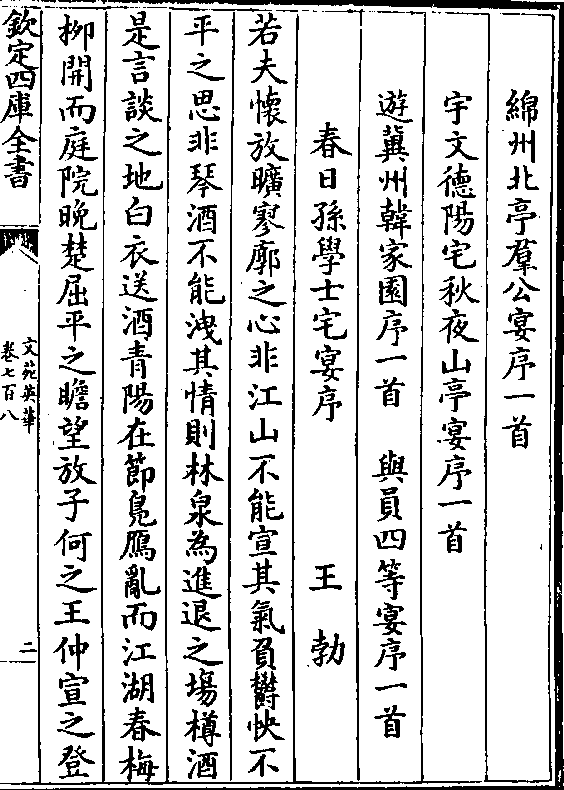 綿州北亭羣公宴序一首
宇文德陽宅秋夜山亭宴序一首
遊冀州韓家園序一首　與員四等宴序一首
春日孫學士宅宴序　王勃
若夫懷放曠寥廓之心非江山不能宣其氣負欝怏不
平之思非琴酒不能洩其情則林泉為進退之塲樽酒
是言談之地白衣送酒青陽在節鳬鴈亂而江湖春梅
栁開而庭院晩楚屈平之瞻望放子何之王仲宣之登
欽定四庫全書
文苑英華
卷七百八
二